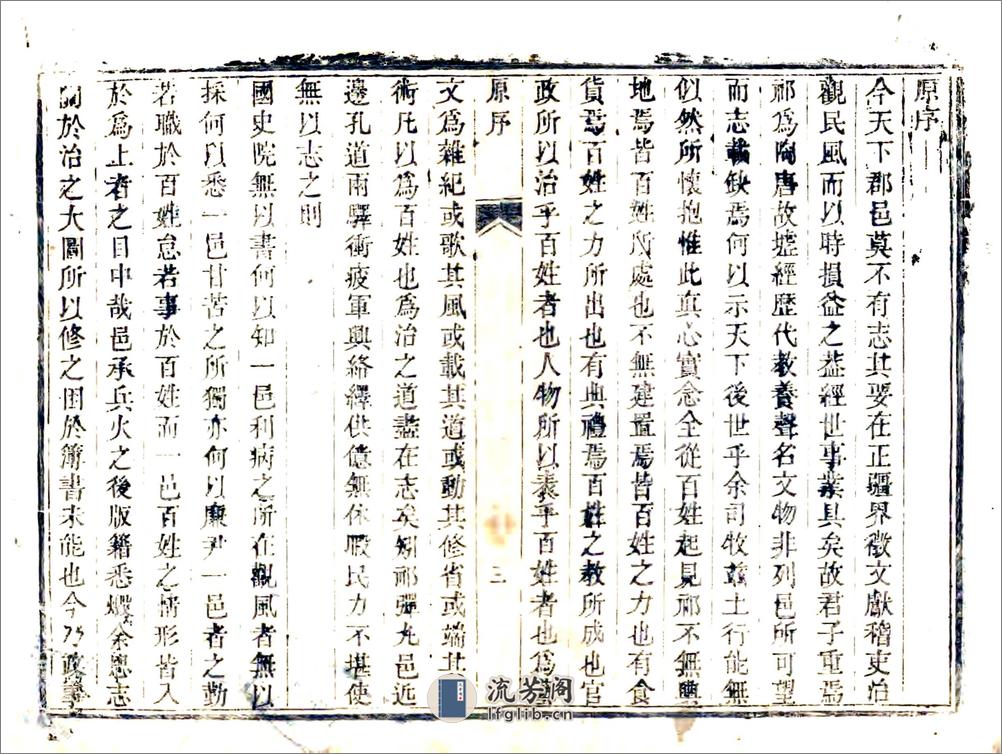 原序
今天下郡邑莫不有志其要在正疆界徵文獻稽吏治
觀民風而以時損益之益經世事業具矣故君子重焉
祁爲陶唐故墟經歷代教養聲名文物非列邑所可望
而志載缺焉何以示天下後世乎余司牧玆土行能無
似然所懷抱惟此真心實念全從百姓起見祁不無輿
地焉皆百姓所處也不無建置焉皆百姓之力也有食
貨焉百姓之力所出也有典禮焉百姓之教所成也官
政所以治乎百姓者也人物所以表乎百姓者也爲藝
原序 三
文爲雜紀或歌其風或載其道或動其修省或端其
術凡以爲百姓也爲治之道盡在志矣矧祁彈丸邑近
邊孔道兩驛衝疲軍興絡繹供億無休暇民力不堪使
無以志之則
國史院無以書何以知一邑利病之所在觀風者無以
採何以悉一邑甘苦之所獨亦何以廉尹一邑者之勤
若職於百姓怠若事於百姓而一邑百姓之情形皆入
於爲上者之目中哉邑承兵火之後版籍悉燬余思志
關於治之大圖所以修之困於簿書未能也今 政事
流芳阁
lfglib.cn